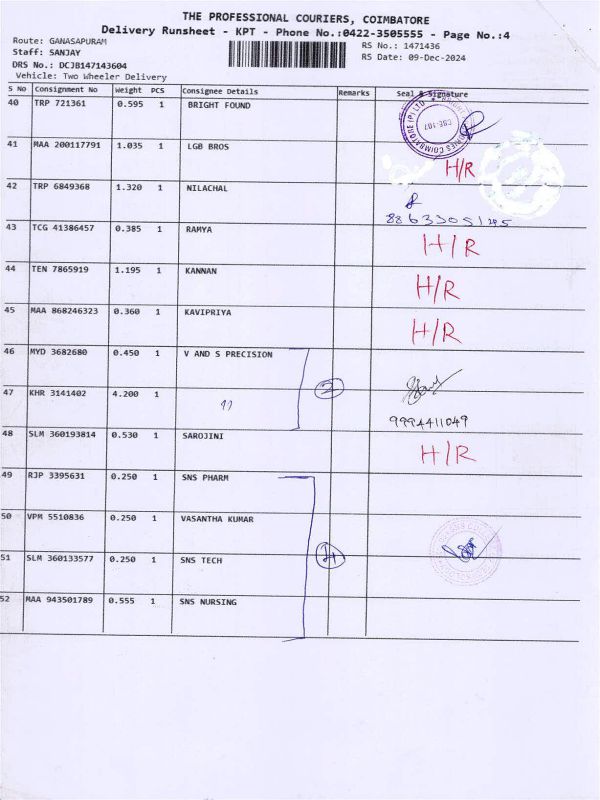 THE PROFESSIONAL COURIERS, COIMBATORE
Delivery Runsheet - KPT - Phone No.:0422-3505555 - Page No.:4
Route: GANASAPURAM
RS No.: 1471436
Staff: SANJAY
RS Date: 09-Dec-2024
DRS No.: DCJB147143604
Vehicle: Two Wheeler Delivery
S No Consignment No Weight PCS Consignee Details Remarks Seal & Signature
40 TRP 721361 0.595 1 BRIGHT FOUND
COIMBATORE (P) LTD
CBE-107
41 MAA 200117791 1.035 1 LGB BROS H/R
42 TRP 6849368 1.320 1 NILACHAL
43 TCG 41386457 0.385 1 RAMYA H/R
44 TEN 7865919 1.195 1 KANNAN H/R
45 MAA 868246323 0.360 1 KAVIPRIYA H/R
46 MYD 3682680 0.450 1 V AND S PRECISION
2
47 KHR 3141402 4.200 1 11
9994411049
48 SLM 360193814 0.530 1 SAROJINI H/R
49 RJP 3395631 0.250 1 SNS PHARM
50 VPM 5510836 0.250 1 VASANTHA KUMAR
51 SLM 360133577 0.250 1 SNS TECH 4
52 MAA 943501789 0.555 1 SNS NURSING